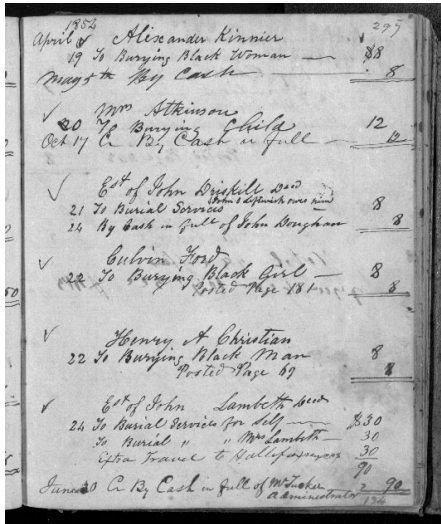 1852
295
April ✓ Alexander Kinnier
19 To Burying Black Woman — $8
May 5th By Cash — 8
✓ Mrs Atkinson
20 To Burying Child 12
Oct 17 Cr By Cash in full — 12
✓ Est of John Driskill Decd
21 To Burial Services 8
24 By Cash in full of John Doughan 8
✓ Culvin Ford
22 To Burying Black Girl — 8
Posted Page 181 8
✓ Henry A Christian
22 To Burying Black Man 8
Posted Page 69 8
✓ Est of John Lambeth Decd
24 To Burial Services for Self — $30
To Burial " " Mrs Lambeth — 30
Extra Travel to Hallifax 30
90
June 20 Cr By Cash in full of Mr Tucker 90
administrator